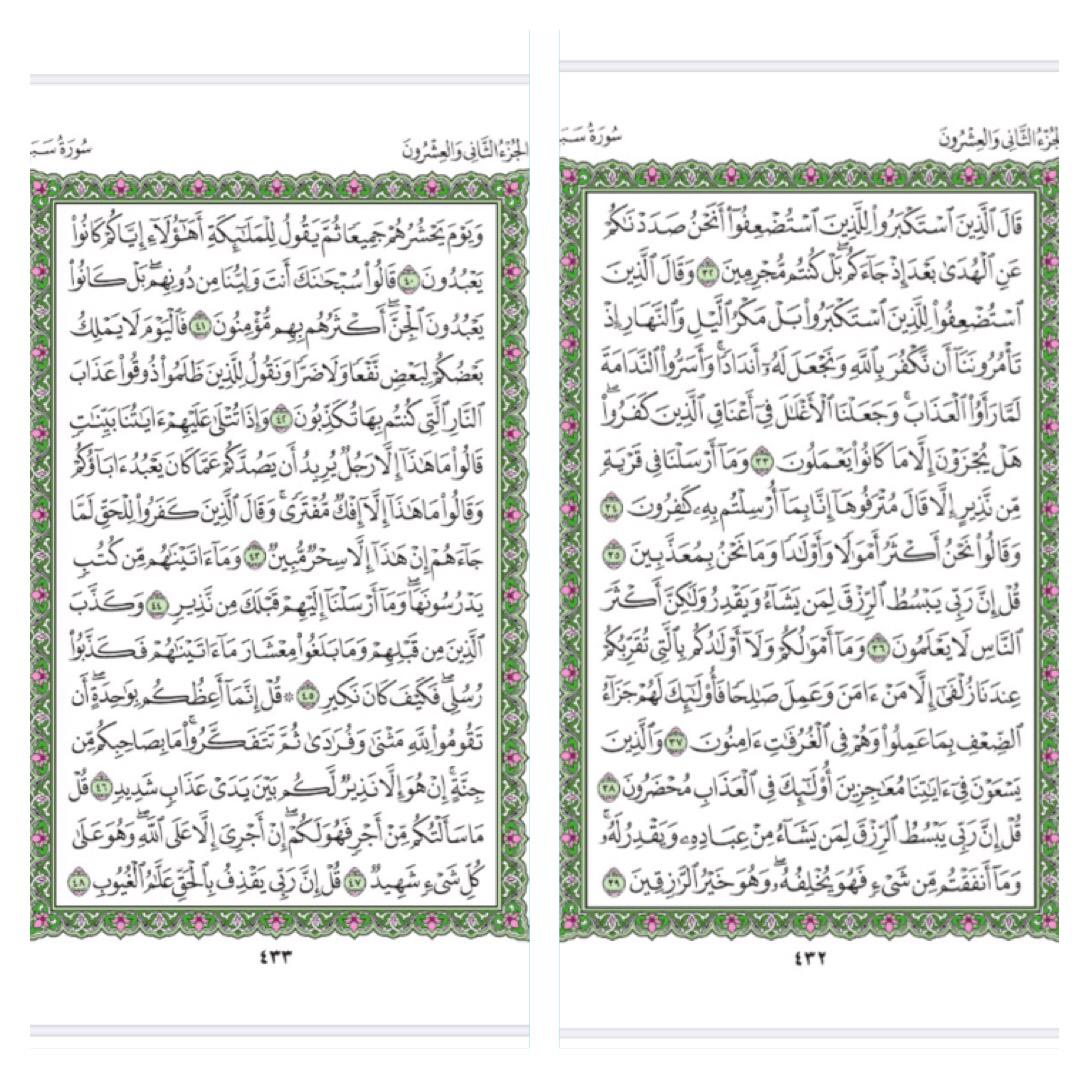 الجُزْءُ الثَّانِي وَالعِشْرُونَ
سُورَةُ سَبَ
قَالَ ٱلَّذِينَ ٱسْتَكْبَرُواْ لِلَّذِينَ ٱسْتُضْعِفُوٓاْ أَنَحْنُ صَدَدْنَٰكُمْ
عَنِ ٱلْهُدَىٰ بَعْدَ إِذْ جَآءَكُم ۖ بَلْ كُنتُم مُّجْرِمِينَ ٣٢ وَقَالَ ٱلَّذِينَ
ٱسْتُضْعِفُواْ لِلَّذِينَ ٱسْتَكْبَرُواْ بَلْ مَكْرُ ٱلَّيْلِ وَٱلنَّهَارِ إِذْ
تَأْمُرُونَنَآ أَن نَّكْفُرَ بِٱللَّهِ وَنَجْعَلَ لَهُۥٓ أَندَادًا ۚ وَأَسَرُّواْ ٱلنَّدَامَةَ
لَمَّا رَأَوُاْ ٱلْعَذَابَ ۚ وَجَعَلْنَا ٱلْأَغْلَٰلَ فِىٓ أَعْنَاقِ ٱلَّذِينَ كَفَرُواْ ۖ
هَلْ يُجْزَوْنَ إِلَّا مَا كَانُواْ يَعْمَلُونَ ٣٣ وَمَآ أَرْسَلْنَا فِى قَرْيَةٍ
مِّن نَّذِيرٍ إِلَّا قَالَ مُتْرَفُوهَآ إِنَّا بِمَآ أُرْسِلْتُم بِهِۦ كَٰفِرُونَ ٣٤
وَقَالُواْ نَحْنُ أَكْثَرُ أَمْوَٰلًا وَأَوْلَٰدًا وَمَا نَحْنُ بِمُعَذَّبِينَ ٣٥
قُلْ إِنَّ رَبِّى يَبْسُطُ ٱلرِّزْقَ لِمَن يَشَآءُ وَيَقْدِرُ وَلَٰكِنَّ أَكْثَرَ
ٱلنَّاسِ لَا يَعْلَمُونَ ٣٦ وَمَآ أَمْوَٰلُكُمْ وَلَآ أَوْلَٰدُكُم بِٱلَّتِى تُقَرِّبُكُمْ
عِندَنَا زُلْفَىٰٓ إِلَّا مَنْ ءَامَنَ وَعَمِلَ صَٰلِحًا فَأُوْلَٰٓئِكَ لَهُمْ جَزَآءُ
ٱلضِّعْفِ بِمَا عَمِلُواْ وَهُمْ فِى ٱلْغُرُفَٰتِ ءَامِنُونَ ٣٧ وَٱلَّذِينَ
يَسْعَوْنَ فِىٓ ءَايَٰتِنَا مُعَٰجِزِينَ أُوْلَٰٓئِكَ فِى ٱلْعَذَابِ مُحْضَرُونَ ٣٨
قُلْ إِنَّ رَبِّى يَبْسُطُ ٱلرِّزْقَ لِمَن يَشَآءُ مِنْ عِبَادِهِۦ وَيَقْدِرُ لَهُۥ ۚ
وَمَآ أَنفَقْتُم مِّن شَىْءٍ فَهُوَ يُخْلِفُهُۥ ۖ وَهُوَ خَيْرُ ٱلرَّٰزِقِينَ ٣٩
٤٣٢
الجُزْءُ الثَّانِي وَالعِشْرُونَ
سُورَةُ سَبَ
وَيَوْمَ يَحْشُرُهُمْ جَمِيعًا ثُمَّ يَقُولُ لِلْمَلَٰٓئِكَةِ أَهَٰٓؤُلَآءِ إِيَّاكُمْ كَانُواْ
يَعْبُدُونَ ٤٠ قَالُواْ سُبْحَٰنَكَ أَنتَ وَلِيُّنَا مِن دُونِهِم ۖ بَلْ كَانُواْ
يَعْبُدُونَ ٱلْجِنَّ ۖ أَكْثَرُهُم بِهِم مُّؤْمِنُونَ ٤١ فَٱلْيَوْمَ لَا يَمْلِكُ
بَعْضُكُمْ لِبَعْضٍ نَّفْعًا وَلَا ضَرًّا وَنَقُولُ لِلَّذِينَ ظَلَمُواْ ذُوقُواْ عَذَابَ
ٱلنَّارِ ٱلَّتِى كُنتُم بِهَا تُكَذِّبُونَ ٤٢ وَإِذَا تُتْلَىٰ عَلَيْهِمْ ءَايَٰتُنَا بَيِّنَٰتٍ
قَالُواْ مَا هَٰذَآ إِلَّا رَجُلٌ يُرِيدُ أَن يَصُدَّكُمْ عَمَّا كَانَ يَعْبُدُ ءَابَآؤُكُمْ
وَقَالُواْ مَا هَٰذَآ إِلَّآ إِفْكٌ مُّفْتَرًى ۚ وَقَالَ ٱلَّذِينَ كَفَرُواْ لِلْحَقِّ لَمَّا
جَآءَهُمْ إِنْ هَٰذَآ إِلَّا سِحْرٌ مُّبِينٌ ٤٣ وَمَآ ءَاتَيْنَٰهُم مِّن كُتُبٍ
يَدْرُسُونَهَا ۖ وَمَآ أَرْسَلْنَآ إِلَيْهِمْ قَبْلَكَ مِن نَّذِيرٍ ٤٤ وَكَذَّبَ
ٱلَّذِينَ مِن قَبْلِهِمْ وَمَا بَلَغُواْ مِعْشَارَ مَآ ءَاتَيْنَٰهُمْ فَكَذَّبُواْ
رُسُلِى ۖ فَكَيْفَ كَانَ نَكِيرِ ٤٥ ۞ قُلْ إِنَّمَآ أَعِظُكُم بِوَٰحِدَةٍ ۖ أَن
تَقُومُواْ لِلَّهِ مَثْنَىٰ وَفُرَٰدَىٰ ثُمَّ تَتَفَكَّرُواْ ۚ مَا بِصَاحِبِكُم مِّن
جِنَّةٍ ۚ إِنْ هُوَ إِلَّا نَذِيرٌ لَّكُم بَيْنَ يَدَىْ عَذَابٍ شَدِيدٍ ٤٦ قُلْ
مَا سَأَلْتُكُم مِّنْ أَجْرٍ فَهُوَ لَكُمْ ۖ إِنْ أَجْرِىَ إِلَّا عَلَى ٱللَّهِ ۖ وَهُوَ عَلَىٰ
كُلِّ شَىْءٍ شَهِيدٌ ٤٧ قُلْ إِنَّ رَبِّى يَقْذِفُ بِٱلْحَقِّ عَلَّٰمُ ٱلْغُيُوبِ ٤٨
٤٣٣